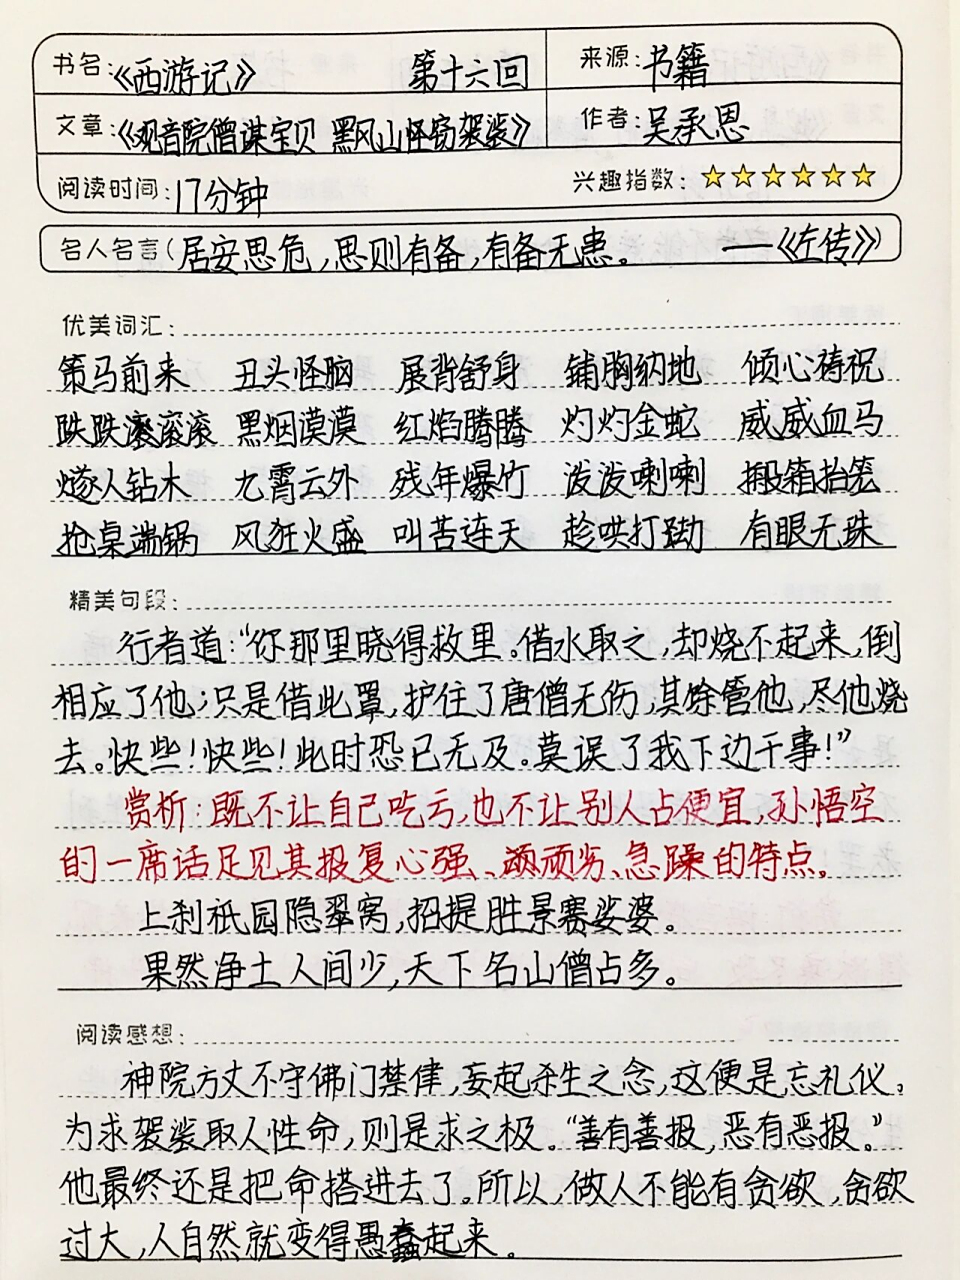 书名:《西游记》 第十六回 来源:书籍
文章:《观音院僧谋宝贝 黑风山怪窃袈裟》 作者:吴承恩
阅读时间:17分钟 兴趣指数:☆☆☆☆☆☆
名人名言(居安思危,思则有备,有备无患。 ——《左传》)
优美词汇:
策马前来 丑头怪脑 展背舒身 铺胸纳地 倾心祷祝
跌跌滚滚滚 黑烟漠漠 红焰腾腾 灼灼金蛇 威威血马
燧人钻木 九霄云外 残年爆竹 泼泼喇喇 搬箱抬笼
抢桌端锅 风狂火盛 叫苦连天 趁哄打劫 有眼无珠
精美句段:
行者道:“你那里晓得救里。借水取之,却烧不起来,倒
相应了他;只是借此罩,护住了唐僧无伤,其馀管他,尽他烧
去。快些!快些!此时恐已无及。莫误了我下边干事!”
赏析:既不让自己吃亏,也不让别人占便宜,孙悟空
的一席话足见其报复心强、顽劣、急躁的特点。
上刹祇园隐翠窝,招提胜景赛娑婆。
果然净土人间少,天下名山僧占多。
阅读感想:
神院方丈不守佛门禁律,妄起杀生之念,这便是忘礼仪。
为求袈裟取人性命,则是求之极。“善有善报,恶有恶报。”
他最终还是把命搭进去了。所以,做人不能有贪欲,贪欲
过大,人自然就变得愚蠢起来。